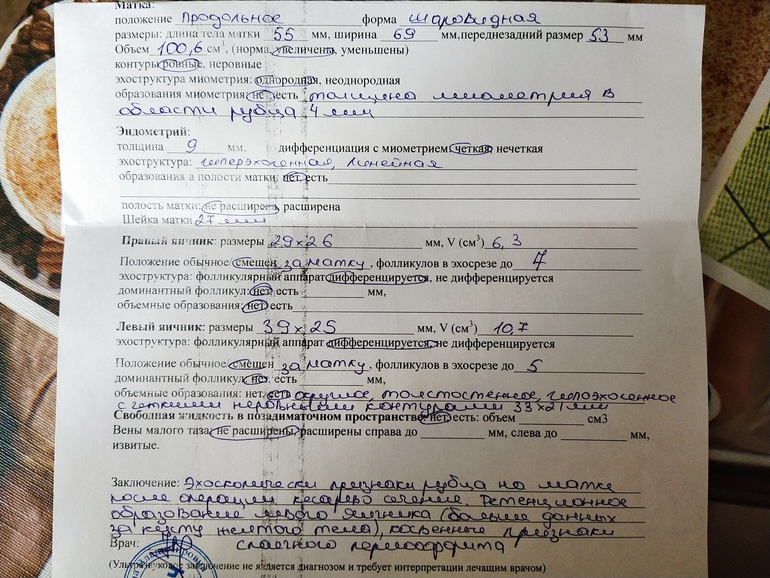 Матка:
положение Продольное форма шаровидная
размеры: длина тела матки 55 мм, ширина 69 мм,переднезадний размер 53 мм
Объем 100,6 см³, (норма, увеличены, уменьшены)
контуры ровные, неровные
эхоструктура миометрия: однородная, неоднородная
образования миометрия: нет, есть толщина миометрия в
области рубца 4 мм
Эндометрий:
толщина 9 мм, дифференциация с миометрием: четкая, нечеткая
эхоструктура: гиперэхогенная, линейная
образования в полости матки: нет, есть
полость матки: не расширена, расширена
Шейка матки 27 мм
Правый яичник: размеры 29х26 мм, V (см³) 6,3
Положение обычное, смещен за матку, фолликулов в эхосрезе до 7
эхоструктура: фолликулярный аппарат дифференцируется, не дифференцируется
доминантный фолликул: нет, есть мм,
объемные образования: нет, есть
Левый яичник: размеры 39х25 мм, V (см³) 10,7
эхоструктура: фолликулярный аппарат дифференцируется, не дифференцируется
Положение обычное, смещен за матку, фолликулов в эхосрезе до 5
доминантный фолликул: нет, есть мм,
объемные образования: нет, есть округлое, толстостенное, гипоэхогенное
с четкими неровными контурами 33х21 мм
Свободная жидкость в позадиматочном пространстве: нет, есть: объем см3
Вены малого таза: не расширены, расширены справа до мм, слева до мм,
извитые.
Заключение: Эхоскопически признаки рубца на матке
после операции кесарево сечение. Ретенционное
образование левого яичника (больше данных
за кисту желтого тела), косвенные признаки
Врач: спаечного периоофорита
(Ультразвуковое заключение не является диагнозом и требует интерпретации лечащим врачом)